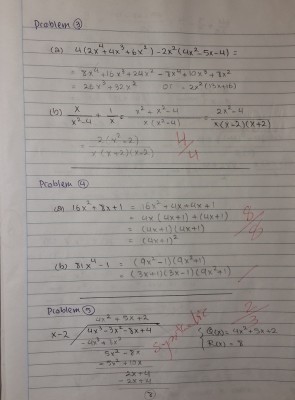 Problem ③
(a) 4(2x⁴+4x³+6x²)-2x²(4x²-5x-4)=
= 8x⁴+16x³+24x²-8x⁴+10x³+8x²
= 26x³+32x² or = 2x²(13x+16)
(b) x/(x²-4) + 1/x = (x²+x²-4)/(x(x²-4)) = (2x²-4)/(x(x-2)(x+2))
= 2(x²-2)/(x(x+2)(x-2))
4/4
Problem ④
(a) 16x²+8x+1 = 16x²+4x+4x+1
= 4x(4x+1)+(4x+1)
= (4x+1)(4x+1)
= (4x+1)²
(b) 81x⁴-1 = (9x²-1)(9x²+1)
= (3x+1)(3x-1)(9x²+1)
Problem ⑤
4x²+5x+2
x-2 4x³-3x²-8x+4
5x²-8x
2x+4
-2x+4
(8)
Q(x)=4x²+5x+2
R(x)=8